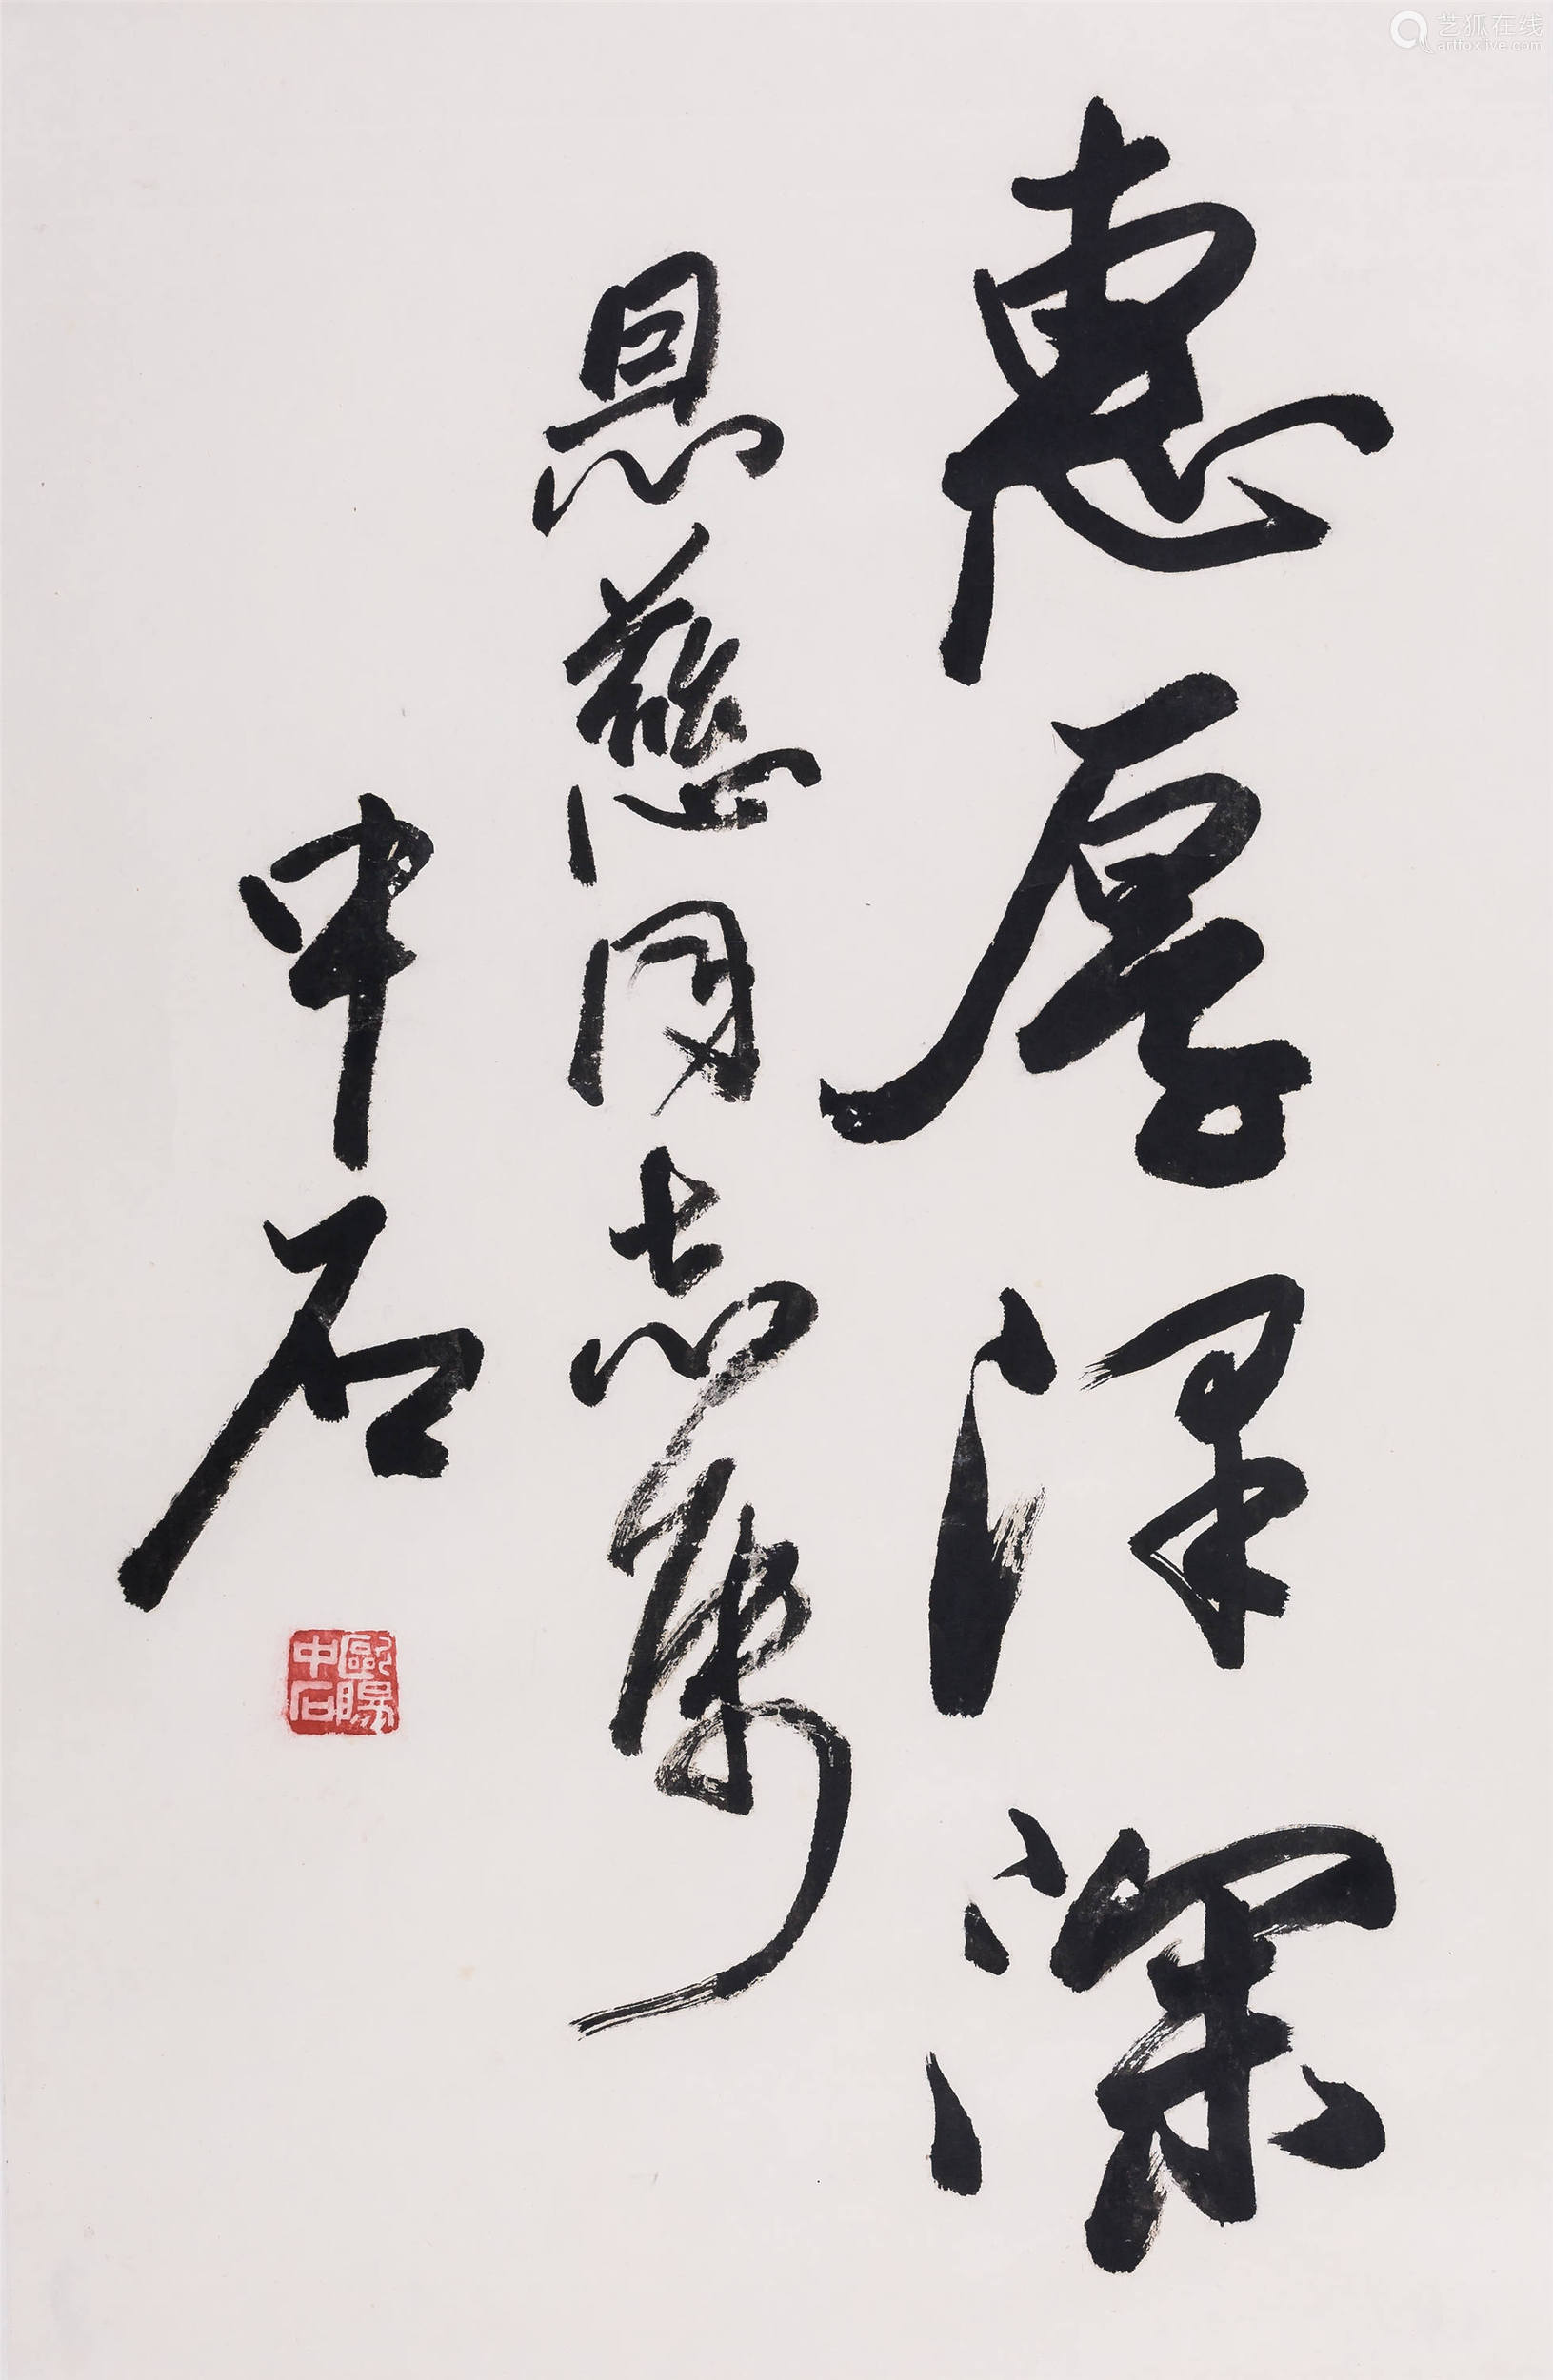 惠厚泽深
恩慈同志属
中石
歐陽中石
艺狐在线
artfoxlive.com